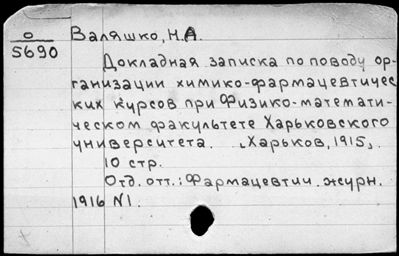 0
5690
Валяшко, Н.А.
Докладная записка по поводу ор-
ганизации химико-фармацевтичес
ких курсов при Физико-математи-
ческом факультете Харьковского
университета. [Харьков, 1915].
10 стр.
Отд. отт.: Фармацевтич. журн.
1916 N1.